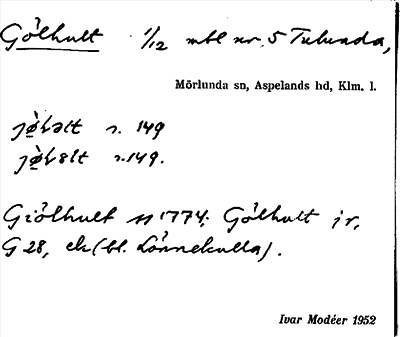 Gölhult 1/12 mtl nr. 5 Tulunda,
Mörlunda sn, Aspelands hd, Klm. l.
s. 149
s. 149.
Giölhult 1774; Gölhult jr,
G 28, ek (bl. Lönnekulla).
Ivar Modéer 1952